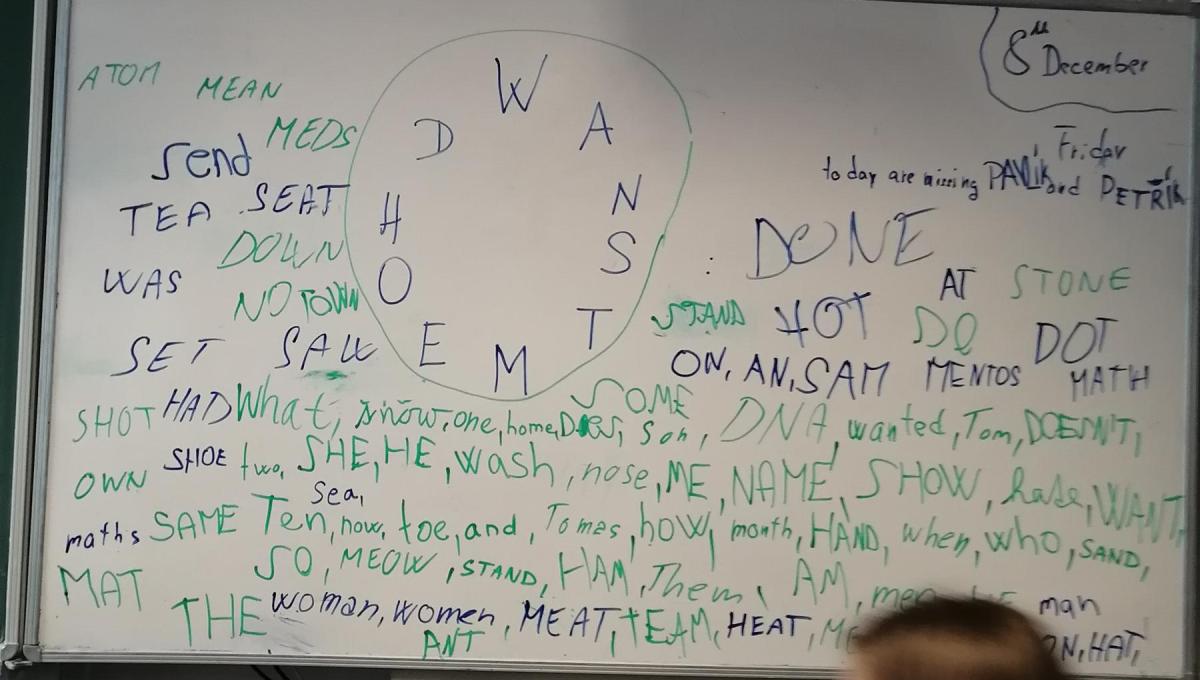 8th December
Friday
today are missing PAVLÍK and PETŘÍK
W
A
N
S
T
M
E
O
H
D
ATOM MEAN
MEDS
Send
TEA SEAT
DOWN
WAS
NO TOWN
SET SAW
: DONE
AT STONE
STAND HOT DO DOT
ON, AN, SAM MENTOS MATH
SOME
SHOT HAD What, snow, one, home, Does, Son, DNA, wanted, Tom, DOESN'T,
OWN SHOE two, SHE, HE, wash, nose, ME, NAME, SHOW, hate, WANT,
sea,
maths SAME Ten, now, toe, and, Tomas, how, month, HAND, when, who, SAND,
MAT SO, MEOW, STAND, HAM, Them, AM, man
THE woman, women, MEAT, TEAM, HEAT, HAT,
ANT